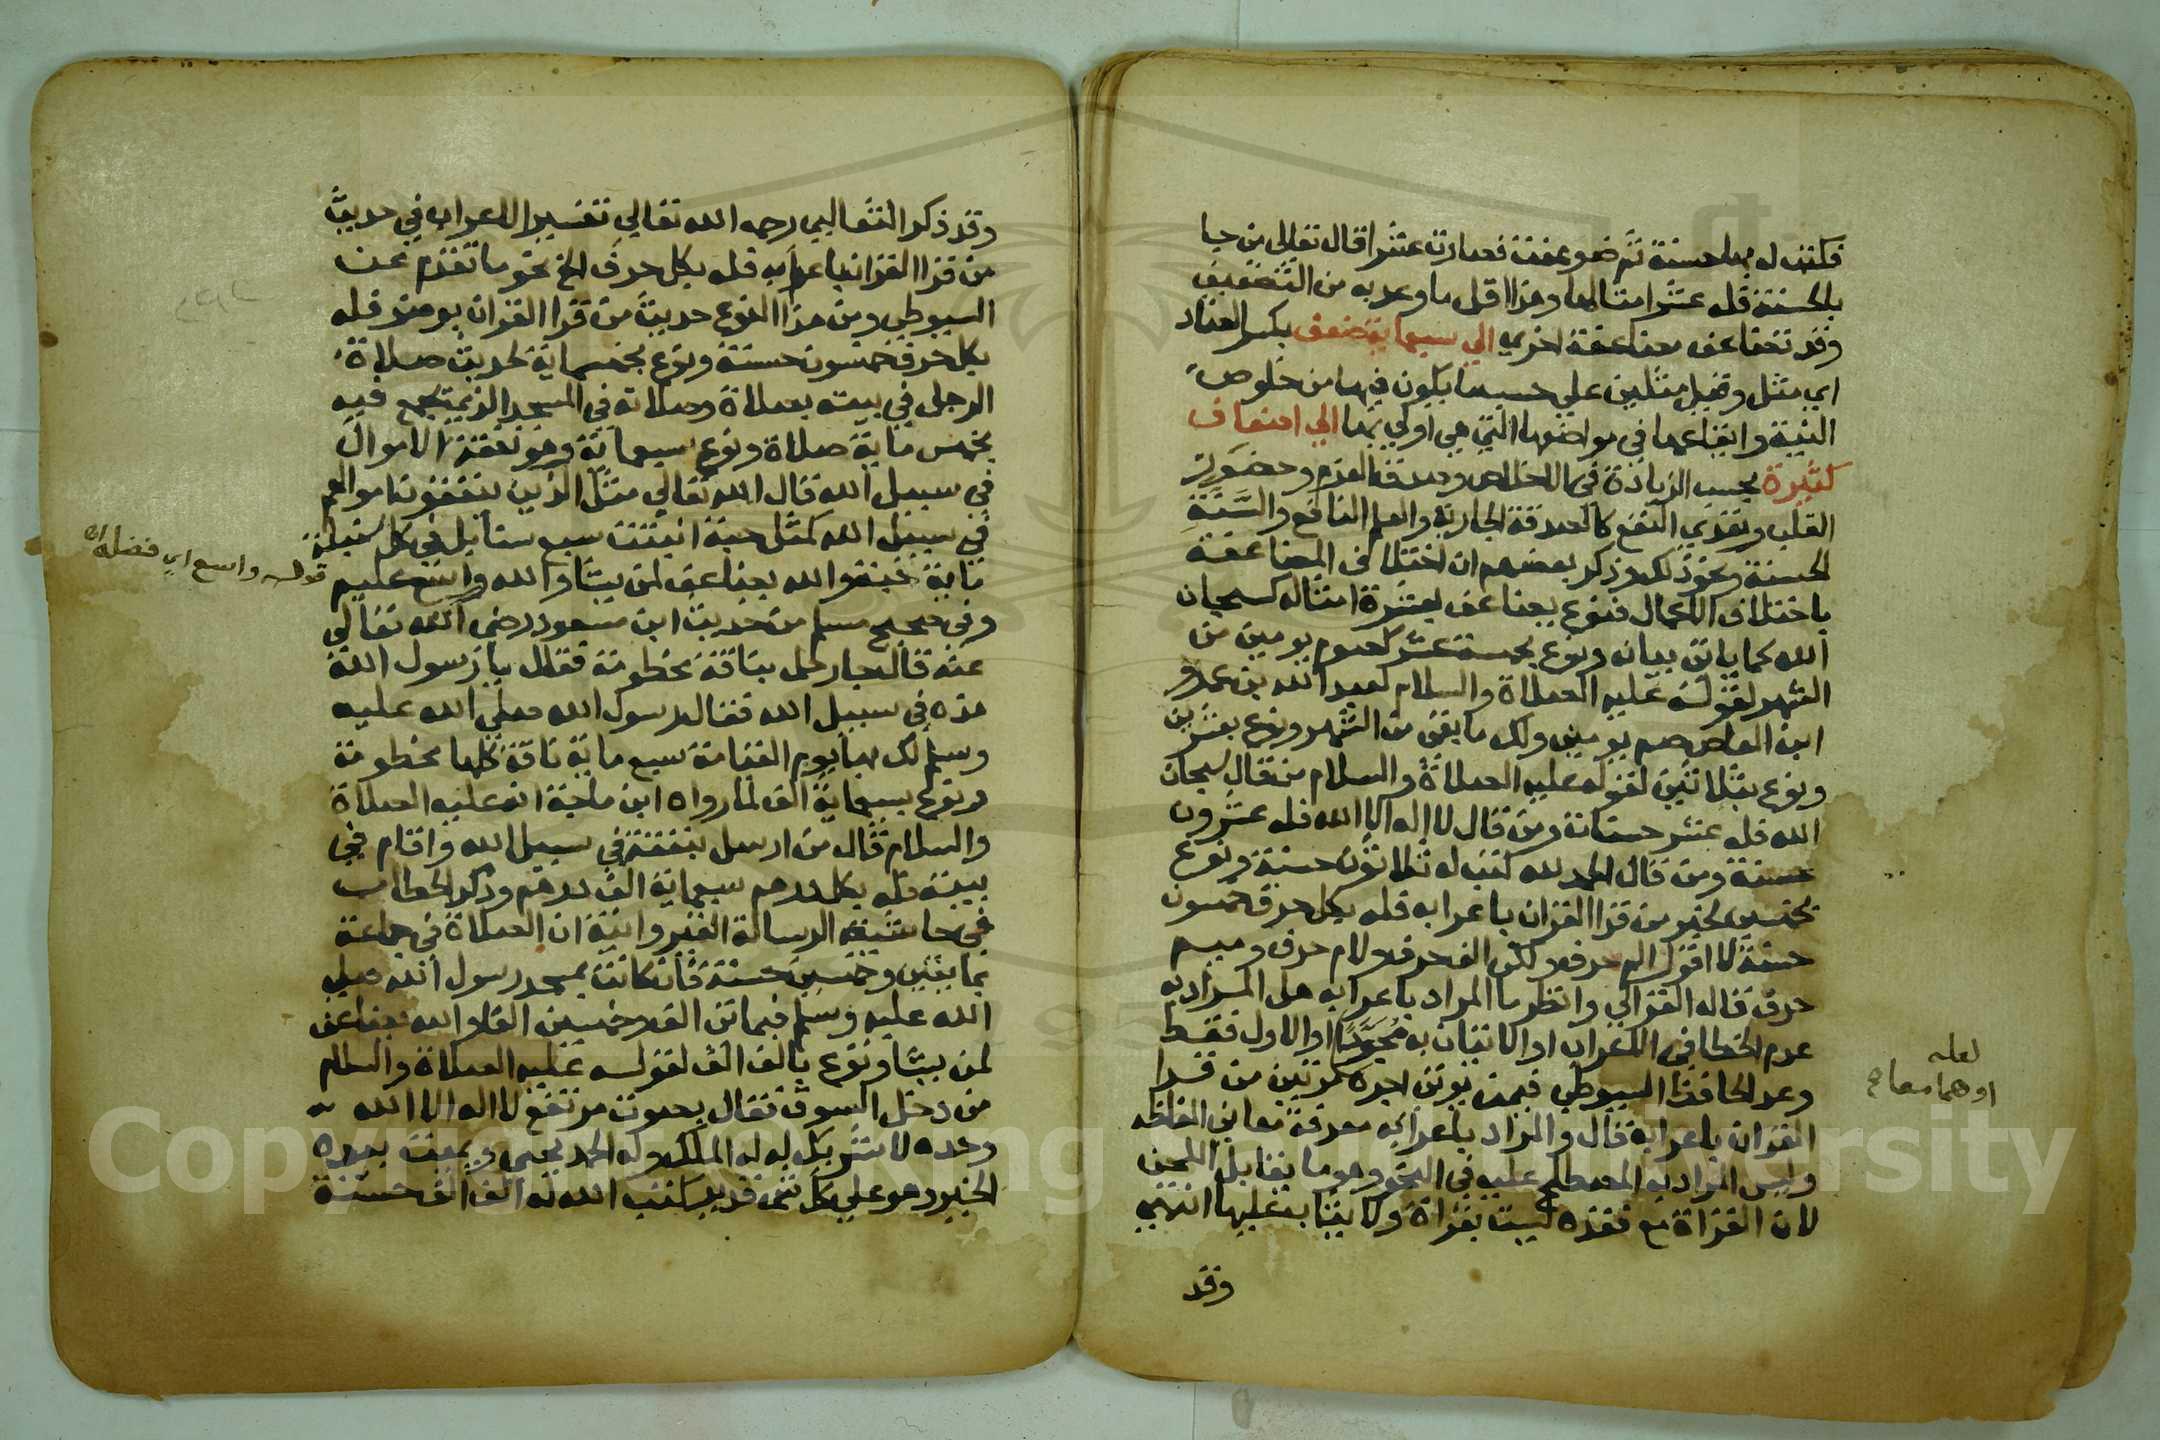 فكتبت له بها حسنة ثم ضوعفت فصارت عشرا قال تعالي من جا
بالحسنة فله عشر امثالها وهذا اقل ما وعد به من التضعيف
وقد تضاعف مضاعفة اخري الي سبعماية ضعف بكسر الضاد
اي مثل وقيل مثلين علي حسب ما يكون فيها من خلوص
النية وايقاعها في مواضعها التي هي اولي بها الي اضعاف
كثيرة بحسب الزيادة في الاخلاص وصدق العزم وحضور
القلب وتعدي النفع كالصدقة الجارية والعلم النافع والسنة
الحسنة ونحو ذلك وذكر بعضهم ان اختلاف المضاعفة
باختلاف الاعمال فنوع يضاعف بعشرة امثاله كسبحان
الله كما ياتي بيانه ونوع بخمسة عشر كصوم يومين من
الشهر لقوله عليه الصلاة والسلام لعبد الله بن عمرو
ابن العاص صم يومين ولك ما بقي من الشهر ونوع بعشرين
ونوع بثلاثين لقوله عليه الصلاة والسلام من قال سبحان
الله فله عشر حسنات ومن قال لا اله الا الله فله عشرون
حسنة ومن قال الحمد لله كتب له ثلاثون حسنة ونوع
بخمسين لخبر من قرا القران باعرابه فله بكل حرف خمسون
حسنة لا اقول الم حرف ولكن الف حرف ولام حرف وميم
حرف قاله الغزالي وانظر ما المراد باعرابه هل المراد به
عدم الخطا في الاعراب او الاتيان به مجودا او الاول فقط
وعد الحافظ السيوطي فيمن يوتى اجره مرتين من قرا
القران باعرابه قال والمراد باعرابه معرفة معاني الفاظه
وليس المراد به المصطلح عليه في النحو وهو ما يقابل اللحن
لان القراة مع فقده ليست بقراة ولا يثاب عليها انتهى
وقد
لعله
او هما معا ح
وقد ذكر الثعالبي رحمه الله تعالي تفسير الاعراب في حديث
من قرا القران باعرابه فله بكل حرف الخ نحو ما تقدم عن
السيوطي ومن هذا النوع حديث من قرا القران بوضو فله
بكل حرف خمسون حسنة ونوع بخمسماية لحديث صلاة
الرجل في بيته بصلاة وصلاته في المسجد الذي يجمع فيه
بخمس ماية صلاة ونوع سبعماية وهو نفقة الاموال
في سبيل الله قال الله تعالي مثل الذين ينفقون اموالهم
في سبيل الله كمثل حبة انبتت سبع سنابل في كل سنبلة
ماية حبة والله يضاعف لمن يشا والله واسع عليم
وفي صحيح مسلم من حديث ابن مسعود رضي الله تعالي
عنه قال جا رجل بناقة مخطومة فقال يا رسول الله
هذه في سبيل الله فقال رسول الله صلي الله عليه
وسلم لك بها يوم القيامة سبع ماية ناقة كلها مخطومة
ونوع بسبعماية الف لما رواه ابن ماجة انه عليه الصلاة
والسلام قال من ارسل بنفقة في سبيل الله واقام في
بيته فله بكل درهم سبعماية الف درهم وذكر الحطاب
في حاشيته الرسالة القيروانية ان الصلاة في جماعة
بمايتين وخمسين حسنة فان كانت بمسجد رسول الله صلي
الله عليه وسلم فبماتي الف وخمسين الفا والله يضاعف
لمن يشا ونوع بالف الف لقوله عليه الصلاة والسلام
من دخل السوق فقال بصوت مرتفع لا اله الا الله
وحده لا شريك له له الملك وله الحمد يحيى ويميت بيده
الخير وهو علي كل شي قدير كتب الله له الف الف حسنة
قوله واسع اي فضله اه